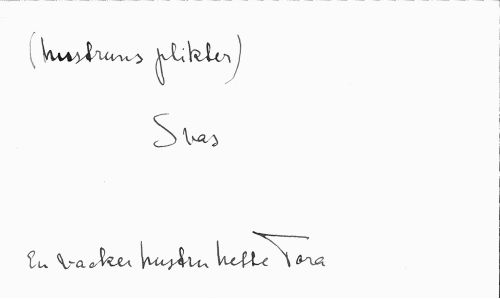 (hustruns plikter)
Svas
En vacker hustru hette Tora